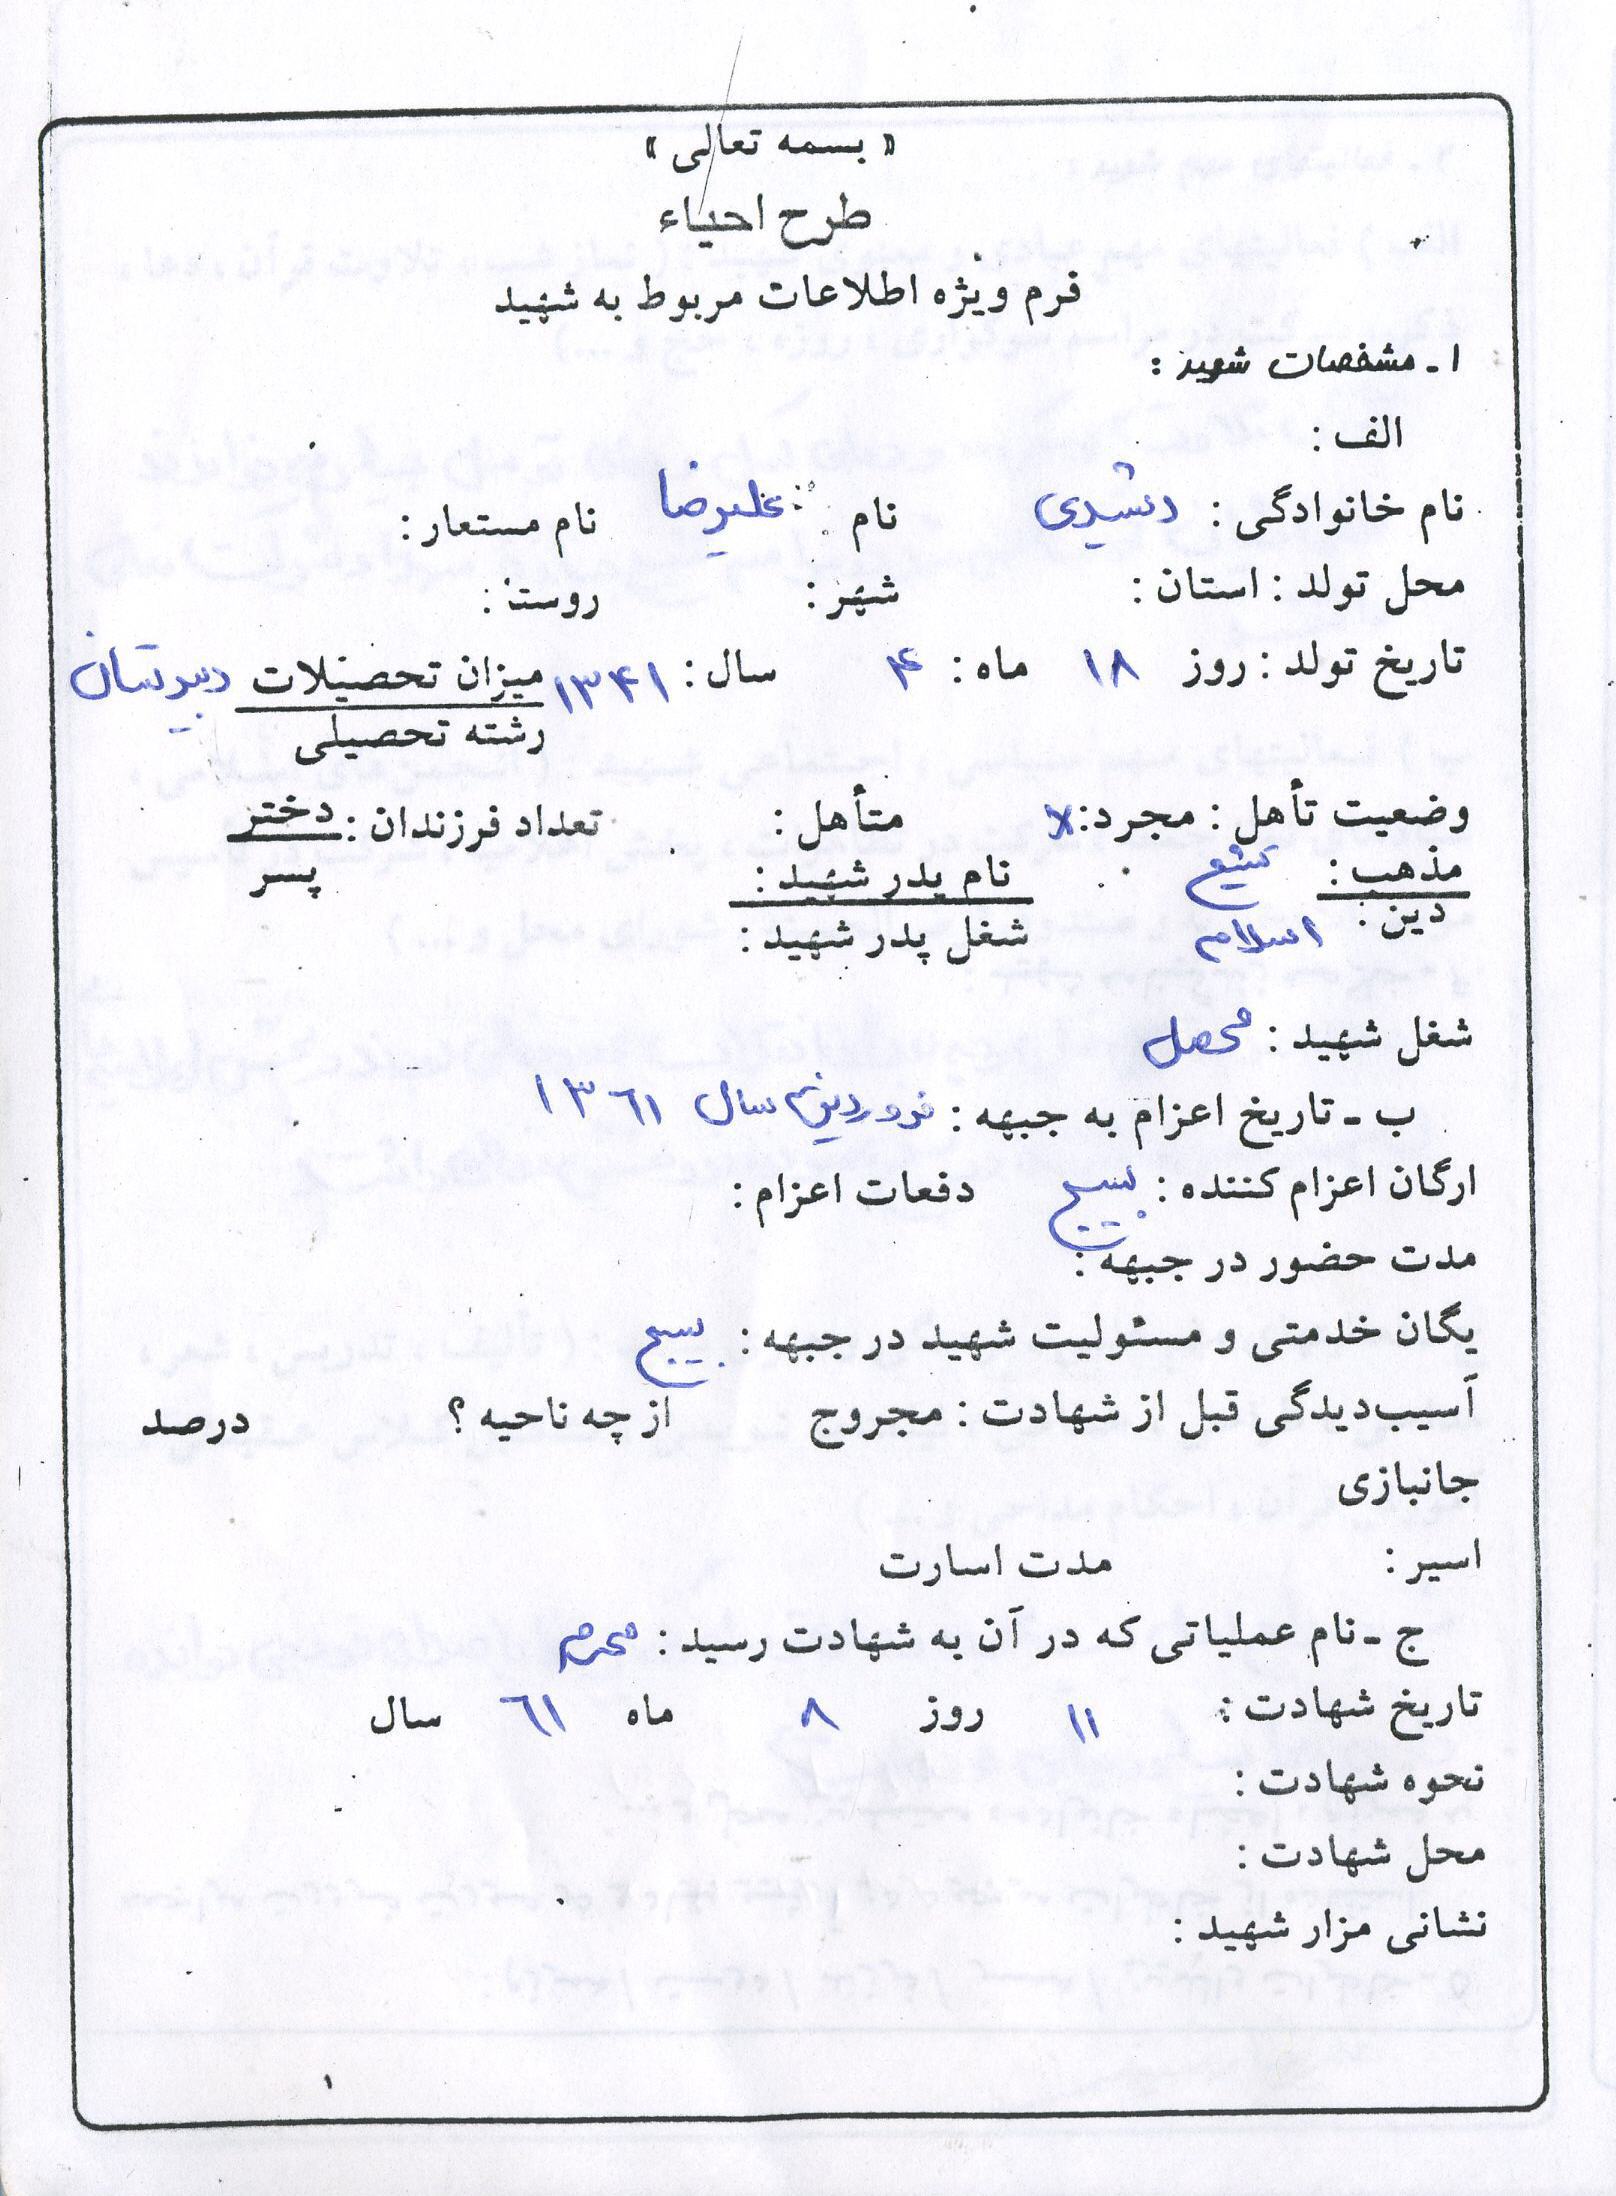 « بسمه تعالی »
طرح احیاء
فرم ویژه اطلاعات مربوط به شهید
۱ـ مشخصات شهید :
الف :
نام خانوادگی : رشیدی نام : علیرضا نام مستعار :
محل تولد : استان : شهر : روستا :
تاریخ تولد : روز ۱۸ ماه : ۴ سال : ۱۳۴۱ میزان تحصیلات دبیرستان
رشته تحصیلی
وضعیت تأهل : مجرد : x متأهل : تعداد فرزندان : دختر
مذهب : تشیع نام پدر شهید : پسر
دین : اسلام شغل پدر شهید :
شغل شهید : محصل
ب ـ تاریخ اعزام به جبهه : فروردین سال ۱۳۶۱
ارگان اعزام کننده : بسیج دفعات اعزام :
مدت حضور در جبهه :
یگان خدمتی و مسئولیت شهید در جبهه : بسیج
آسیب‌دیدگی قبل از شهادت : مجروح از چه ناحیه ؟ درصد
جانبازی
اسیر : مدت اسارت
ج ـ نام عملیاتی که در آن به شهادت رسید : محرم
تاریخ شهادت : ۱۱ روز ۸ ماه ۶۱ سال
نحوه شهادت :
محل شهادت :
نشانی مزار شهید :
۱